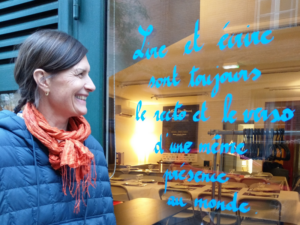 Lire et écrire
sont toujours
le recto et le verso
d'une même
présence
au monde